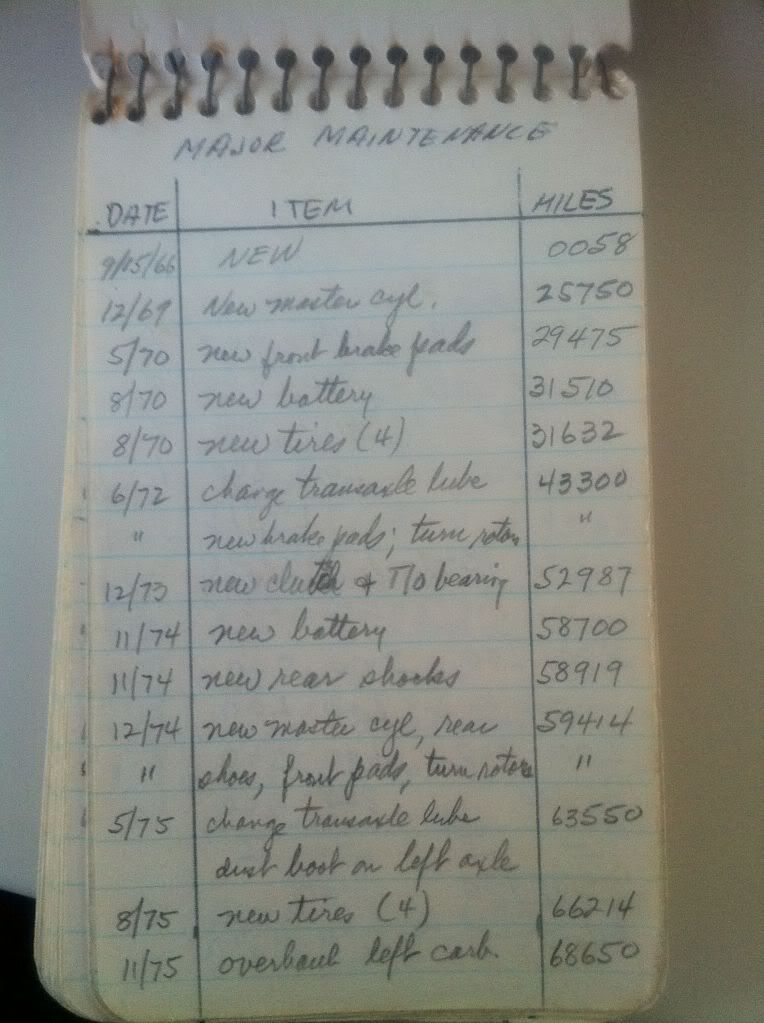 MAJOR MAINTENANCE
DATE ITEM MILES
9/15/66 NEW 0058
12/69 New master cyl. 25750
5/70 new front brake pads 29475
8/70 new battery 31510
8/70 new tires (4) 31632
6/72 change transaxle lube 43300
" new brake pads; turn rotors "
12/73 new clutch & T/o bearing 52987
11/74 new battery 58700
11/74 new rear shocks 58919
12/74 new master cyl, rear 59414
" shoes, front pads, turn rotors "
5/75 change transaxle lube 63550
dust boot on left axle
8/75 new tires (4) 66214
11/75 overhaul left carb. 68650